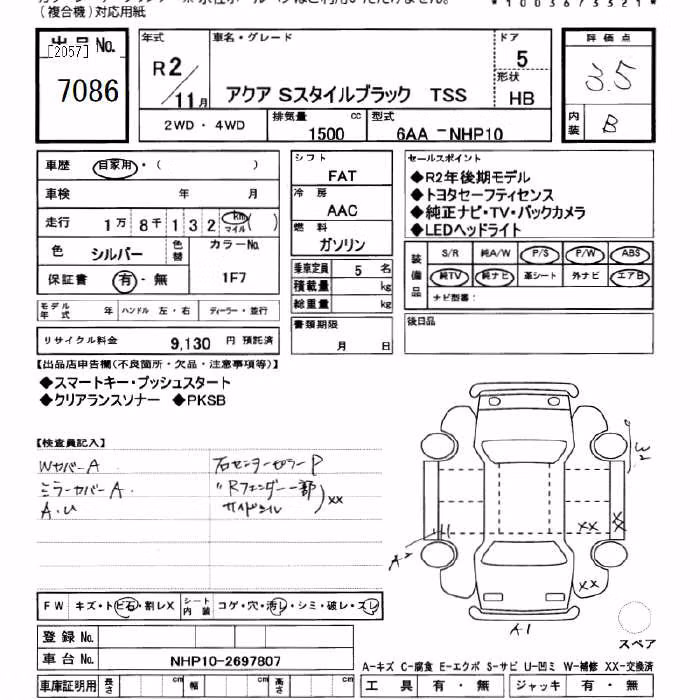 (複合機)対応用紙
*1003673321*
出品No.
[2057]
7086
年式
R2/11月
車名・グレード
アクア Sスタイルブラック TSS
ドア
5
形状
HB
2WD・4WD
排気量
1500 cc
型式
6AA-NHP10
評価点
3.5
内装
B
車歴
自家用・( )
車検 年 月
走行 1万8千132 km マイル( )
色 シルバー
色替
カラーNo.
1F7
保証書 有・無
モデル年式 年 ハンドル 左・右 ディーラー・並行
リサイクル料金 9,130 円 預託済
シフト
FAT
冷房
AAC
燃料
ガソリン
乗車定員 5 名
積載量 kg
総重量 kg
書類期限
月 日
セールスポイント
◆R2年後期モデル
◆トヨタセーフティセンス
◆純正ナビ・TV・バックカメラ
◆LEDヘッドライト
装備品
S/R 純A/W P/S P/W ABS
純TV 純ナビ 革シート 外ナビ エアB
ナビ型番:
後日品
【出品店申告欄(不良箇所・欠品・注意事項等)】
◆スマートキー・プッシュスタート
◆クリアランスソナー ◆PKSB
【検査員記入】
Wカバー A
ミラーカバー A.
A.U
右センターピラー P
〃Rフェンダー一部
サイドシル
XX
W2
XX
XX
XX
A2
A1
スペア
FW キズ・トビ石・割レX
シート内装 コゲ・穴・汚レ・シミ・破レ・スレ
登録No.
車台No. NHP10-2697807
車庫証明用 長さ cm 幅 cm 高さ cm
A-キズ C-腐食 E-エクボ S-サビ U-凹ミ W-補修 XX-交換済
工具 有・無 ジャッキ 有・無